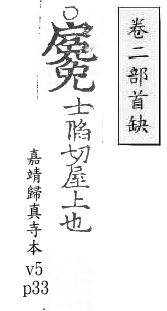 卷二部首缺
士陷切屋上也
嘉靖歸真寺本
v5
p33